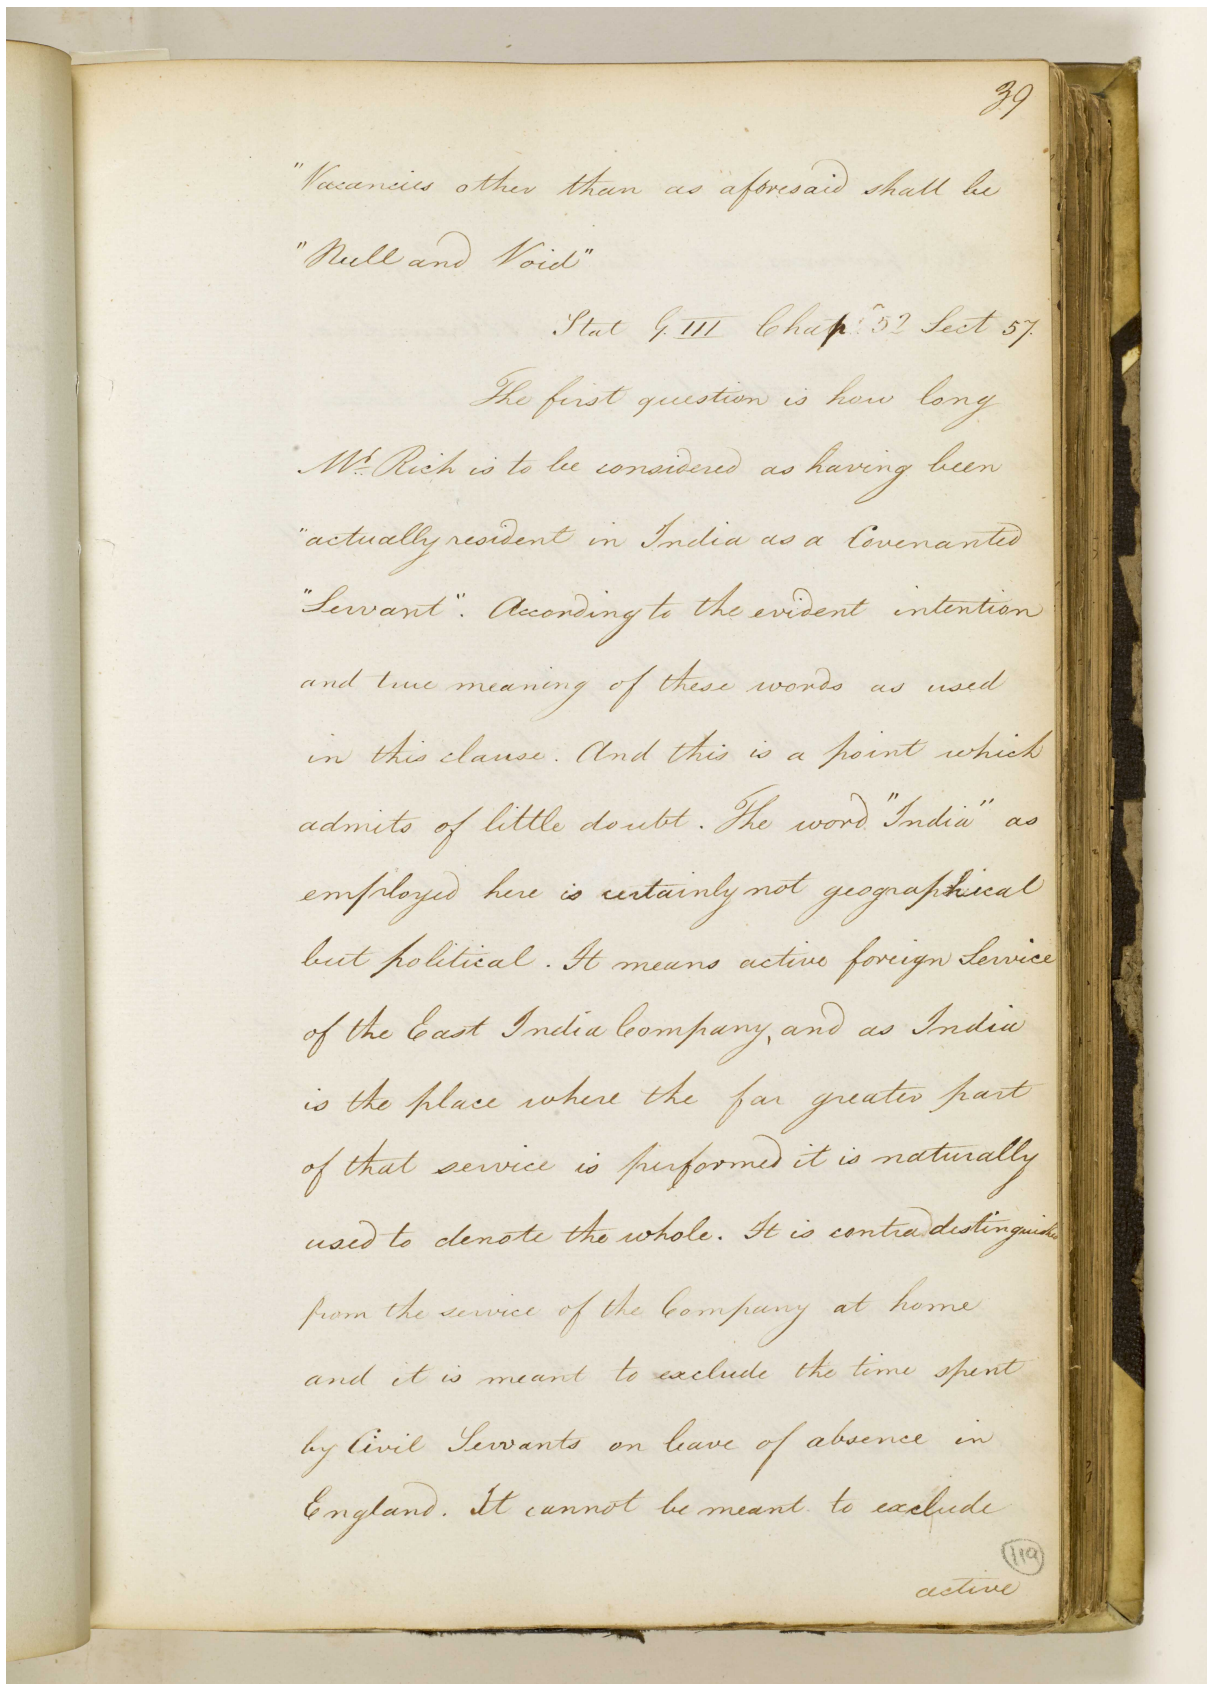 39
"Vacancies other than as aforesaid shall be
"Null and Void"
Stat G. III Chap: 52 Sect 57.
The first question is how long
Mr. Rich is to be considered as having been
"actually resident in India as a Covenanted
"Servant". According to the evident intention
and true meaning of these words as used
in this clause. And this is a point which
admits of little doubt. The word "India" as
employed here is certainly not geographical
but political. It means active foreign Service
of the East India Company, and as India
is the place where the far greater part
of that service is performed it is naturally
used to denote the whole. It is contradestinguished
from the service of the Company at home
and it is meant to exclude the time spent
by Civil Servants on leave of absence in
England. It cannot be meant to exclude
119
active